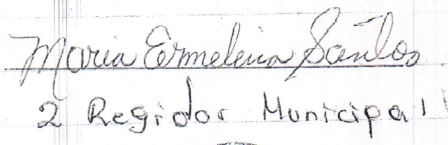 Maria Ermelina Santos
2 Regidor Municipal